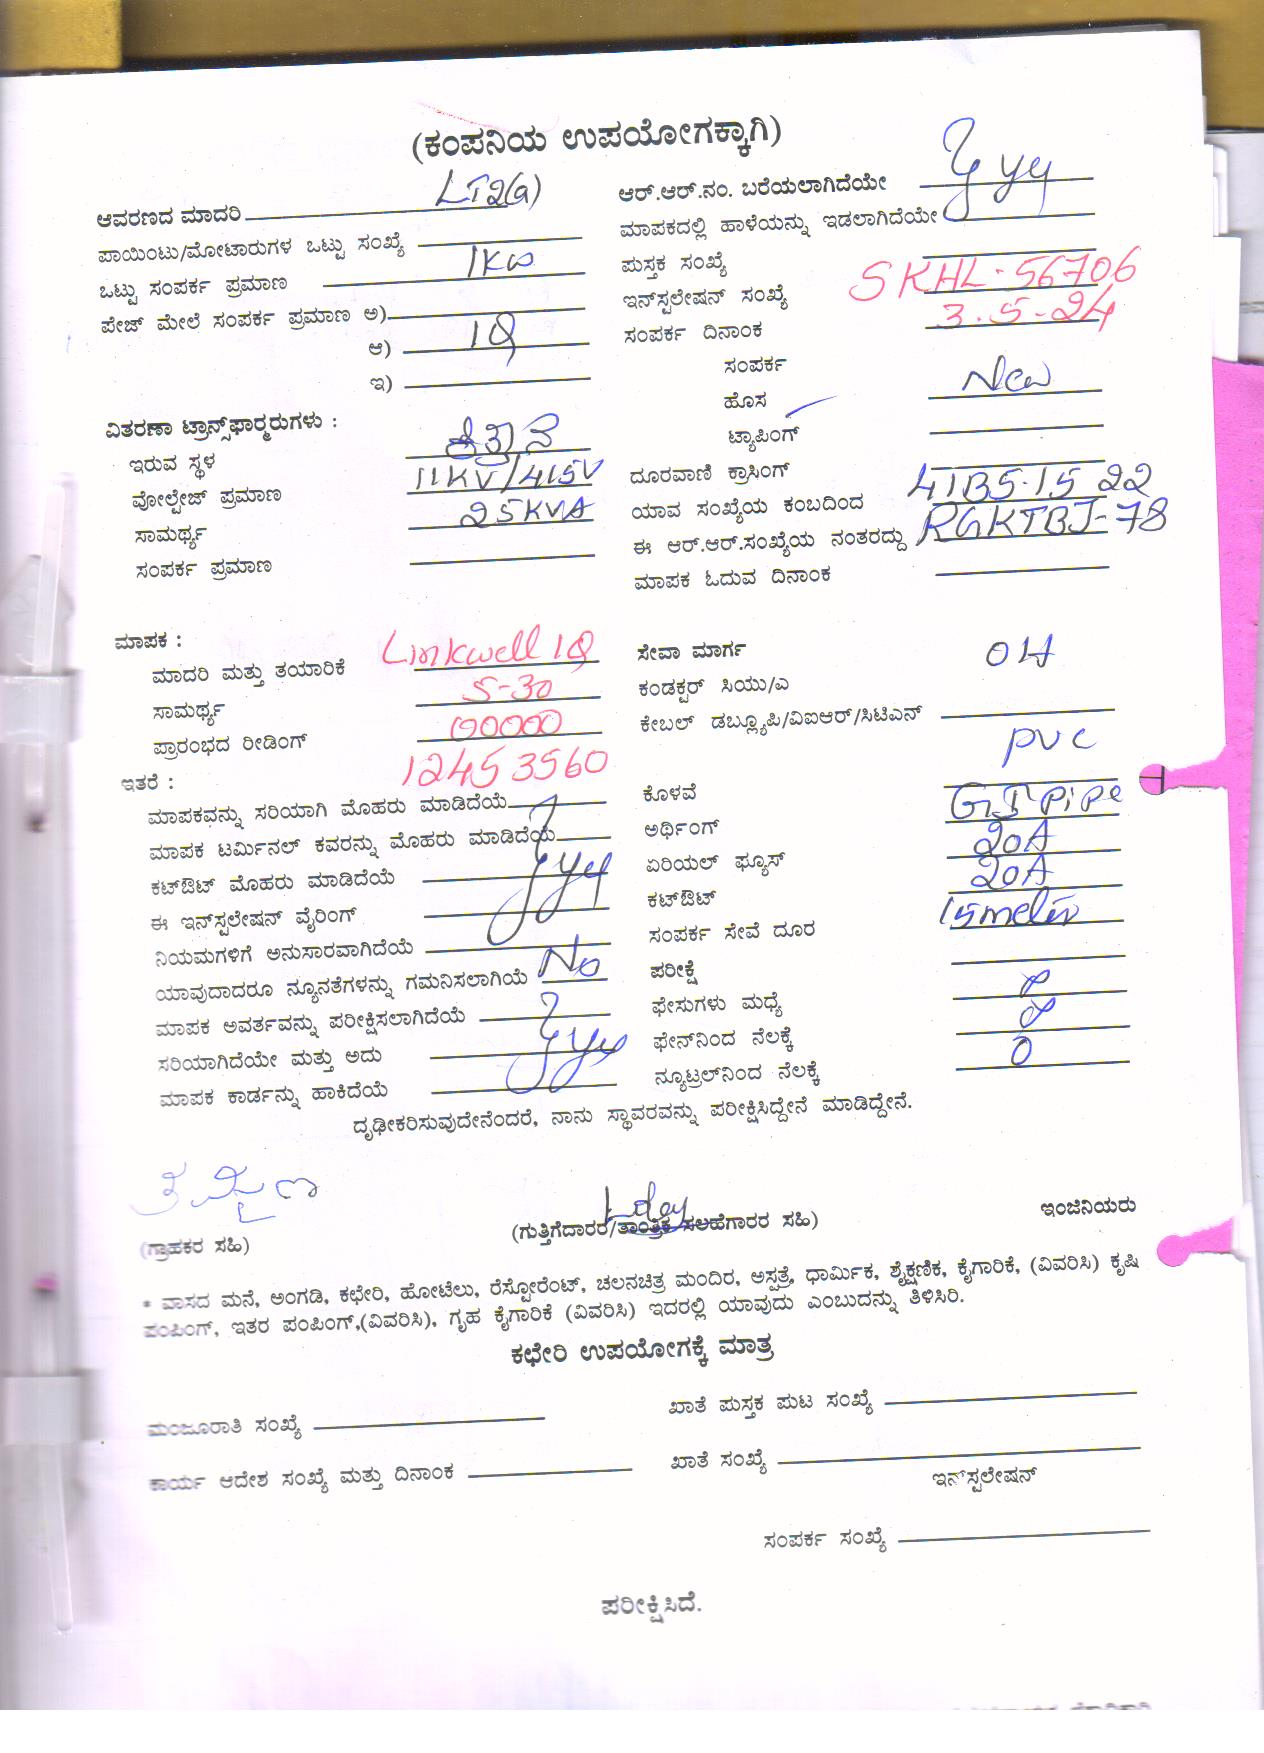 (ಕಂಪನಿಯ ಉಪಯೋಗಕ್ಕಾಗಿ)
ಆವರಣದ ಮಾದರಿ LT2(a)
ಪಾಯಿಂಟು/ಮೋಟಾರುಗಳ ಒಟ್ಟು ಸಂಖ್ಯೆ
ಒಟ್ಟು ಸಂಪರ್ಕ ಪ್ರಮಾಣ 1KW
ಪೇಜ್ ಮೇಲೆ ಸಂಪರ್ಕ ಪ್ರಮಾಣ ಅ)
ಆ) 1Q
ಇ)
ವಿತರಣಾ ಟ್ರಾನ್ಸ್‌ಫಾರ್‍ಮರುಗಳು :
ಇರುವ ಸ್ಥಳ
ವೋಲ್ಟೇಜ್ ಪ್ರಮಾಣ 11KV/415V
ಸಾಮರ್ಥ್ಯ 25KVA
ಸಂಪರ್ಕ ಪ್ರಮಾಣ
ಆರ್.ಆರ್.ನಂ. ಬರೆಯಲಾಗಿದೆಯೇ
ಮಾಪಕದಲ್ಲಿ ಹಾಳೆಯನ್ನು ಇಡಲಾಗಿದೆಯೇ
ಪುಸ್ತಕ ಸಂಖ್ಯೆ
ಇನ್‌ಸ್ಟಲೇಷನ್ ಸಂಖ್ಯೆ SKHL-56706
ಸಂಪರ್ಕ ದಿನಾಂಕ 3-5-24
ಸಂಪರ್ಕ
ಹೊಸ New
ಟ್ಯಾಪಿಂಗ್
ದೂರವಾಣಿ ಕ್ರಾಸಿಂಗ್
ಯಾವ ಸಂಖ್ಯೆಯ ಕಂಬದಿಂದ 41B5-15 22
ಈ ಆರ್.ಆರ್.ಸಂಖ್ಯೆಯ ನಂತರದ್ದು RGKTBJ-78
ಮಾಪಕ ಓದುವ ದಿನಾಂಕ
ಮಾಪಕ :
ಮಾದರಿ ಮತ್ತು ತಯಾರಿಕೆ Linkwell 1Q
ಸಾಮರ್ಥ್ಯ 5-30
ಪ್ರಾರಂಭದ ರೀಡಿಂಗ್ 00000
12453560
ಇತರೆ :
ಮಾಪಕವನ್ನು ಸರಿಯಾಗಿ ಮೊಹರು ಮಾಡಿದೆಯೆ
ಮಾಪಕ ಟರ್ಮಿನಲ್ ಕವರನ್ನು ಮೊಹರು ಮಾಡಿದೆಯೆ
ಕಟ್‌ಔಟ್ ಮೊಹರು ಮಾಡಿದೆಯೆ
ಈ ಇನ್‌ಸ್ಟಲೇಷನ್ ವೈರಿಂಗ್
ನಿಯಮಗಳಿಗೆ ಅನುಸಾರವಾಗಿದೆಯೆ
ಯಾವುದಾದರೂ ನ್ಯೂನತೆಗಳನ್ನು ಗಮನಿಸಲಾಗಿಯೆ No
ಮಾಪಕ ಅವರ್ತವನ್ನು ಪರೀಕ್ಷಿಸಲಾಗಿದೆಯೆ
ಸರಿಯಾಗಿದೆಯೇ ಮತ್ತು ಅದು
ಮಾಪಕ ಕಾರ್ಡನ್ನು ಹಾಕಿದೆಯೆ
ಸೇವಾ ಮಾರ್ಗ OH
ಕಂಡಕ್ಟರ್ ಸಿಯು/ಎ
ಕೇಬಲ್ ಡಬ್ಲ್ಯೂಪಿ/ವಿಐಆರ್/ಸಿಟಿಎಸ್
PVC
ಕೊಳವೆ
ಅರ್ಥಿಂಗ್ GI Pipe
ಏರಿಯಲ್ ಫ್ಯೂಸ್ 20A
ಕಟ್‌ಔಟ್ 20A
ಸಂಪರ್ಕ ಸೇವೆ ದೂರ 15
ಪರೀಕ್ಷೆ
ಫೇಸುಗಳು ಮಧ್ಯೆ
ಫೇಸ್‌ನಿಂದ ನೆಲಕ್ಕೆ
ನ್ಯೂಟ್ರಲ್‌ನಿಂದ ನೆಲಕ್ಕೆ 0
ದೃಢೀಕರಿಸುವುದೇನೆಂದರೆ, ನಾನು ಸ್ಥಾವರವನ್ನು ಪರೀಕ್ಷಿಸಿದ್ದೇನೆ ಮಾಡಿದ್ದೇನೆ.
(ಗ್ರಾಹಕರ ಸಹಿ)
(ಗುತ್ತಿಗೆದಾರರ/ತಾಂತ್ರಿಕ ಸಲಹೆಗಾರರ ಸಹಿ)
ಇಂಜಿನಿಯರು
* ವಾಸದ ಮನೆ, ಅಂಗಡಿ, ಕಛೇರಿ, ಹೋಟೆಲು, ರೆಸ್ಟೋರೆಂಟ್, ಚಲನಚಿತ್ರ ಮಂದಿರ, ಅಸ್ಪತ್ರೆ, ಧಾರ್ಮಿಕ, ಶೈಕ್ಷಣಿಕ, ಕೈಗಾರಿಕೆ, (ವಿವರಿಸಿ) ಕೃಷಿ
ಪಂಪಿಂಗ್, ಇತರ ಪಂಪಿಂಗ್,(ವಿವರಿಸಿ), ಗೃಹ ಕೈಗಾರಿಕೆ (ವಿವರಿಸಿ) ಇದರಲ್ಲಿ ಯಾವುದು ಎಂಬುದನ್ನು ತಿಳಿಸಿರಿ.
ಕಛೇರಿ ಉಪಯೋಗಕ್ಕೆ ಮಾತ್ರ
ಮಂಜೂರಾತಿ ಸಂಖ್ಯೆ
ಖಾತೆ ಪುಸ್ತಕ ಪುಟ ಸಂಖ್ಯೆ
ಕಾರ್ಯ ಆದೇಶ ಸಂಖ್ಯೆ ಮತ್ತು ದಿನಾಂಕ
ಖಾತೆ ಸಂಖ್ಯೆ
ಇನ್‌ಸ್ಟಲೇಷನ್
ಸಂಪರ್ಕ ಸಂಖ್ಯೆ
ಪರೀಕ್ಷಿಸಿದೆ.